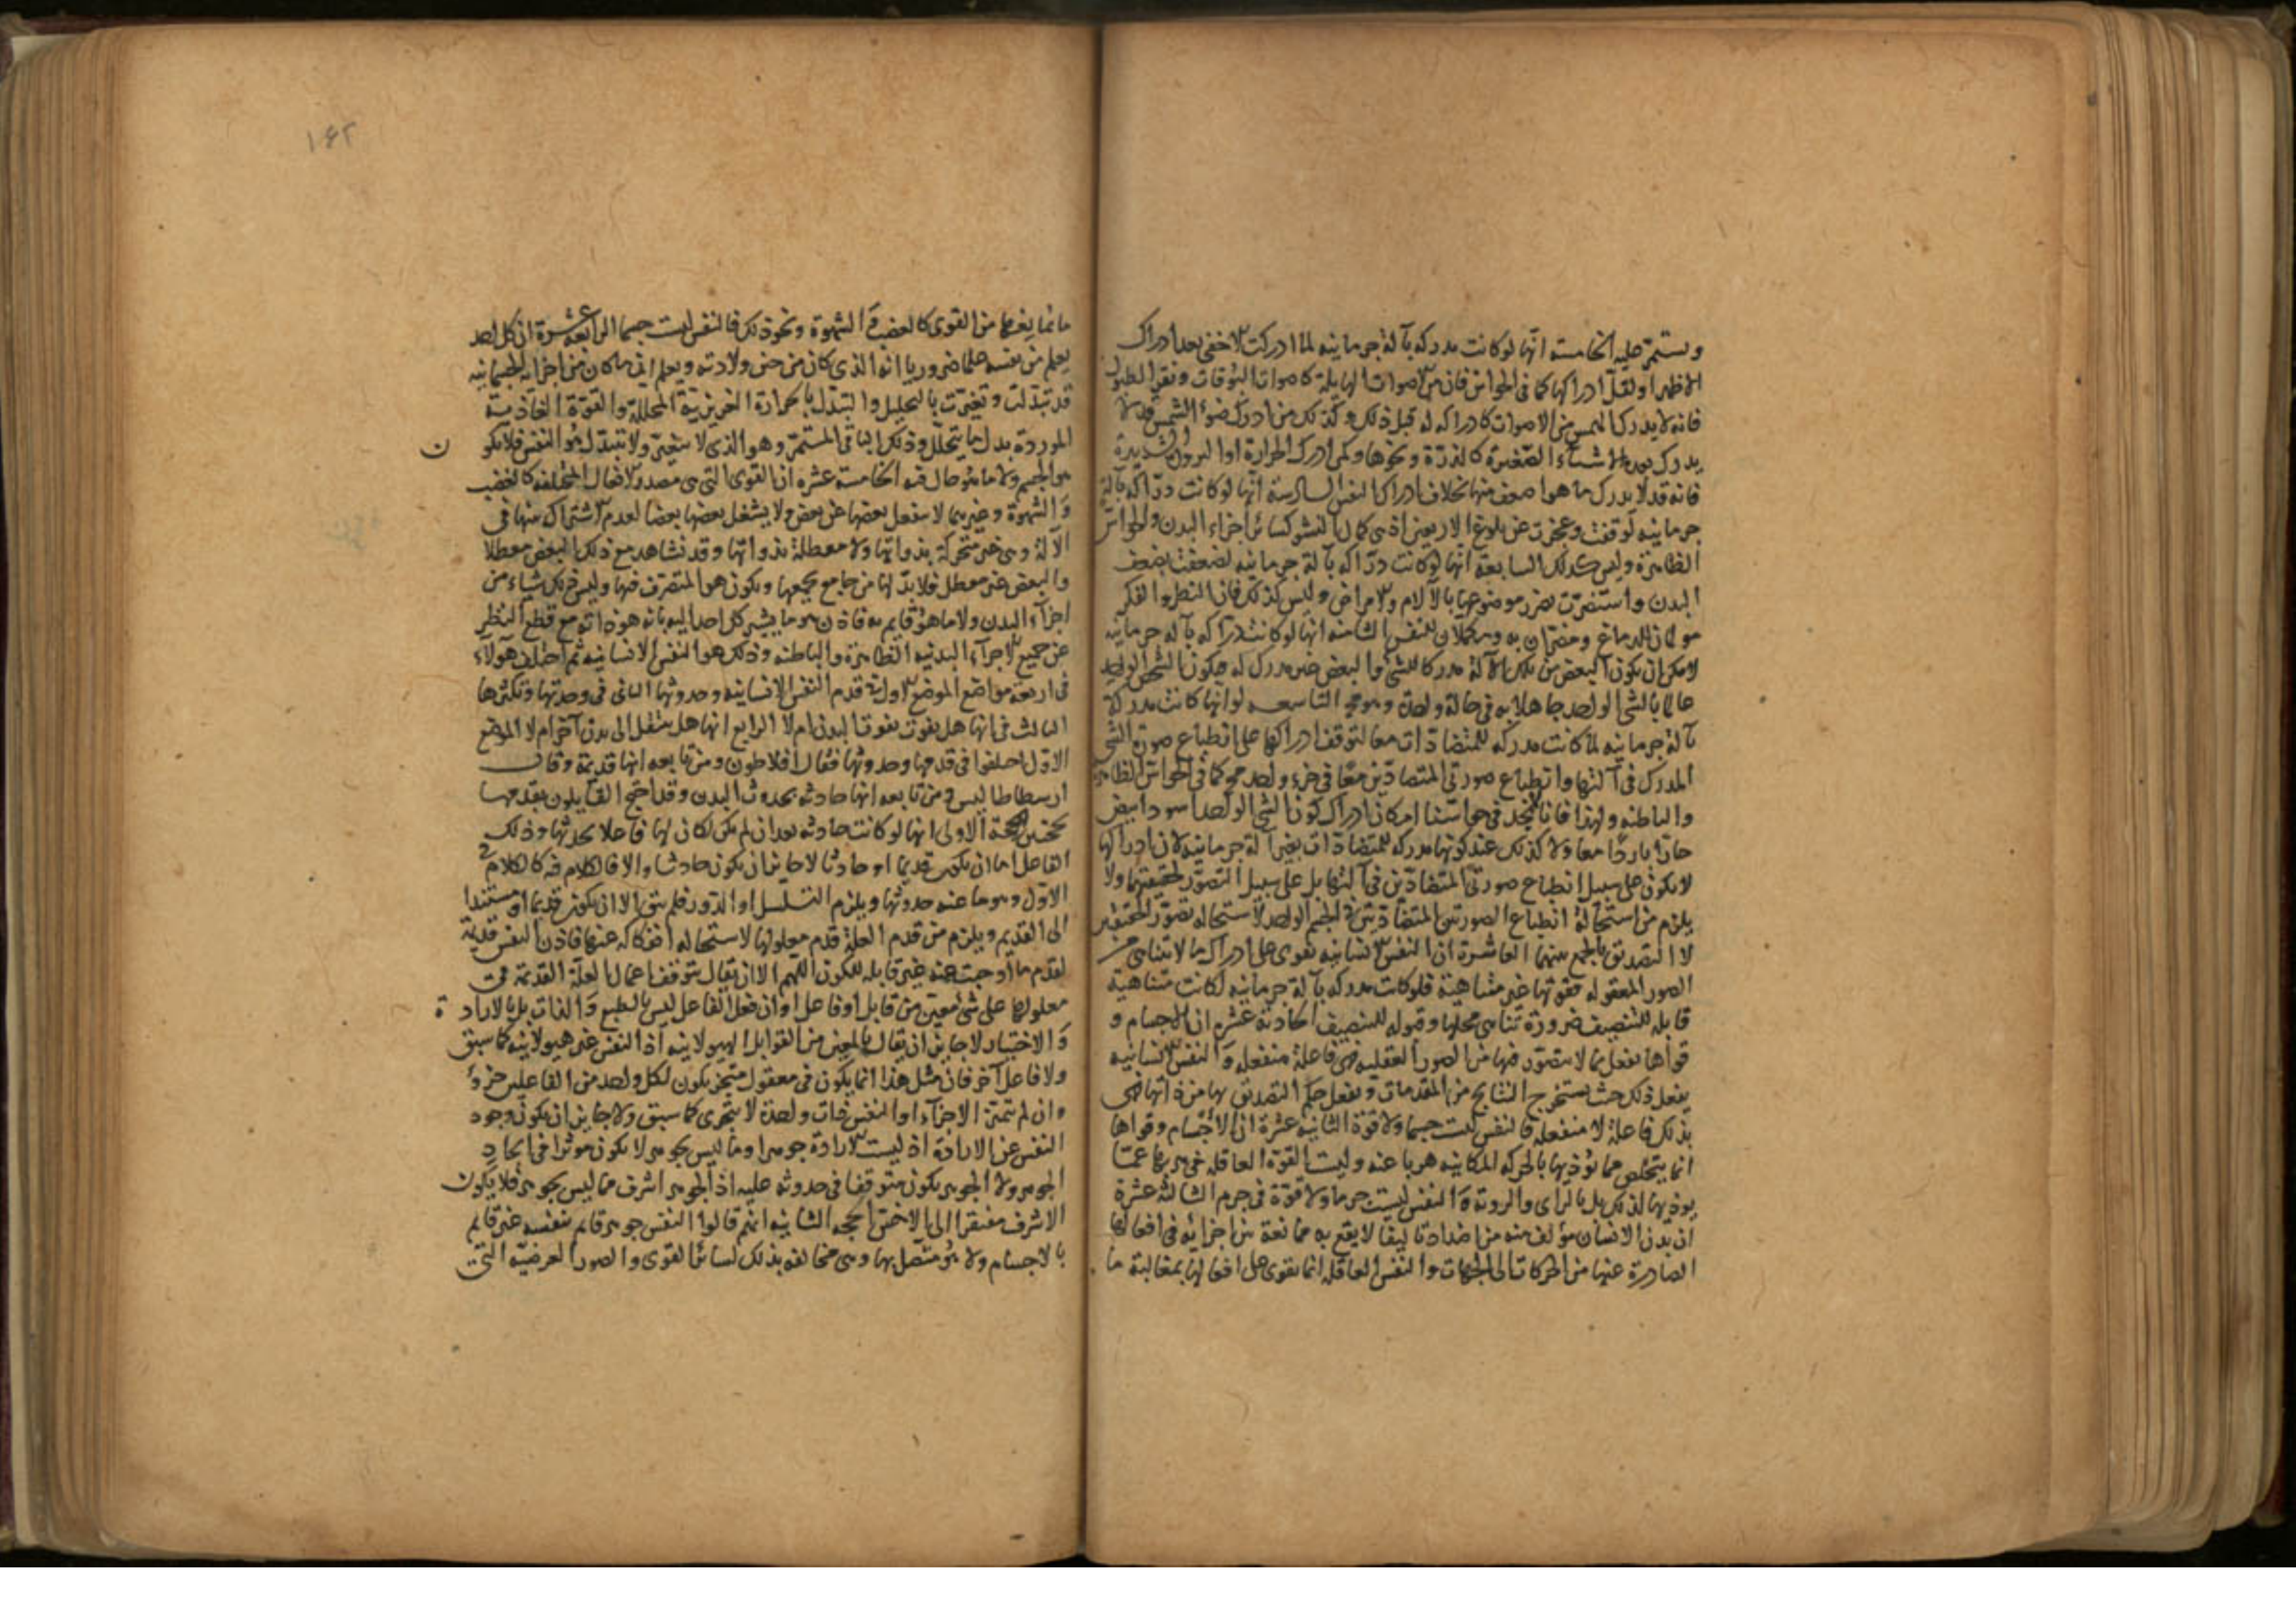 ويستمر عليه الخامسة انها لو كانت مدركة بآلة جرمانية لما ادركت الاخفى بعد ادراك
الاظهر او لقل ادراكها كما فى الحواس فان من الاصوات الهايلة كاصوات البوقات ونقر الطبول
فانه لا يدرك الهمس من الاصوات كادراكه له قبل ذلك وكذلك من ادرك ضوء الشمس قد لا
يدرك بعده الاشياء الصغيرة كالذرة ونحوها وكمن ادرك الحرارة او البرودة الشديدة
فانه قد لا يدرك ما هو اضعف منها بخلاف ادراك النفس السادسة انها لو كانت درّاكه بآلة
جرمانيه لوقفت وعجزت عن بلوغ الاربعين اذ هى كمال النشو كسائر اجزاء البدن والحواس
الظاهرة وليس كذلك السابعة انها لو كانت درّاكه بآلة جرمانيه لضعفت بضعف
البدن واستضرّت بضرر موضوعها بالآلام والامراض وليس كذلك فان النظر والفكر
مولمان للدماغ ومضرّان به ومكملان للنفس الثامنه انها لو كانت درّاكه بآله جرمانيه
لامكن ان يكون البعض من تلك الآلة مدركا للشئ والبعض غير مدرك له فيكون الشخص الواحد
عالما بالشئ الواحد جاهلا به فى حالة واحدة وهو مح التاسعه لو انها كانت مدركة
بآلة جرمانيه لما كانت مدركه للمتضادّات معا لتوقف ادراكها على انطباع صورة الشئ
المدرك فى آلتها وانطباع صورتى المتضادّين معًا فى جزء واحد مح كما فى الحواس الظاهرة
والباطنه ولهذا فانا لا نجد فى حواسّنا امكان ادراك كون الشئ الواحد اسود ابيض
حارّا باردًا معا ولا كذلك عند كونها مدركه للمتضادّات بغير آلة جرمانيه لان ادراكها
لا يكون على سبيل انطباع صورتى المتضادّين فى آلتها بل على سبيل التصوّر لحقيقتهما ولا
يلزم من استحالة انطباع الصورتين المتضادّتين فى الجسم الواحد لاستحاله تصوّر الحقيقتين
لا التصديق بالجمع بينهما العاشرة ان النفس الانسانيه تقوى على ادراك ما لا يتناهى من
الصور المعقوله فقوتها غير متناهية فلو كانت مدركه بآلة جرمانيه لكانت متناهية
قابله للتنصيف ضرورة تناهى محلها وقبوله للتنصيف الحادية عشر ان الاجسام و
قواها تفعل بما لا يتصوّر فيها من الصور العقليه فهى فاعلة منفعله والنفس الانسانيه
يفعل ذلك حيث يستخرج النتايج من المقدمات ويفعل حكم التصديق بها من ذاتها فهى
بذلك فاعلة لا منفعله فالنفس ليست جسما ولا قوة الثانيه عشرة ان الاجسام وقواها
انما يتخلص مما يؤذيها بالحركه المكانيه هربا عنه وليست القوة العاقله فى هربها عمّا
يوذيها لذلك بل بالرأى والروية والنفس ليست جرما ولا قوّة فى جرم الثالثة عشرة
ان بدن الانسان مؤلف منه من اضداد تاليفا لا يقع به ممانعة من اجزائه فى افعالها
الصادرة عنها من الحركات الى الجهات والنفس العاقله انما تقوى على افعالها بمغالبة ما
١٤٢
مانما يفعلها من القوى كالغضب والشهوة ونحو ذلك فالنفس ليست جسما الرابعة عشرة ان كل احد
يعلم من نفسه علما ضروريا انه الذى كان من حين ولادته ويعلم ان ما كان من اجزائه الجسمانيه
قد تبدّلت وتغيّرت بالتحليل والتبدّل بالحرارة الغريزية المحللة والقوة الغاذية
الموردة بدل ما يتحلّل وذلك الباقى المستمرّ وهو الذى لا يتغيّر ولا يتبدّل هو النفس فلا يكو ن
هو الجسم ولا ما هو حال فيه الخامسة عشره ان القوى التى هى مصدر الافعال المختلفه كالغضب
والشهوة وغيرهما لا ينفعل بعضها عن بعض ولا يشغل بعضها بعضا لعدم الاشتراك بينها فى
الآلة وهى غير متحركة بذواتها ولا معطلة بذواتها وقد نشاهد مع ذلك البعض معطلا
والبعض غير معطل فلا بدّ لها من جامع يجمعها ويكون هو المتصرف فيها وليس ذلك شياء من
اجزاء البدن ولا ما هو قايم به فاذن هو ما يشير كل احد اليه بانه هو ذاته مع قطع النظر
عن جميع الاجزاء البدنيه الظاهرة والباطنه وذلك هو النفس الانسانيه ثم اختلف هؤلاء
فى اربعة مواضع الموضع الاول فى قدم النفس الانسانيه وحدوثها الثانى فى وحدتها وتكثرها
الثالث فى انها هل يفوت بفوت البدن ام لا الرابع انها هل ينتقل الى بدن آخر ام لا الموضع
الاوّل اختلفوا فى قدمها وحدوثها فقال افلاطون ومن تابعه انها قديمة وقال
ارسطاطاليس ومن تابعه انها حادثه بحدوث البدن وقد احتج القايلون بقدمها
بحجتين الحجة الاولى انها لو كانت حادثه بعد ان لم تكن لكان لها فاعلا يحدثها وذلك
الفاعل اما ان يكون قديما او حادثا لا جايز ان يكون حادثا والا فالكلام فيه كالكلام فى
الاوّل وهو ما عنه حدوثها ويلزم التسلسل او الدور فلم يبق الا ان يكون قديما او مستندا
الى القديم ويلزم من قدم العلة قدم معلولها لاستحاله انفكاكه عنها فاذن النفس قديمة
لقدم ما اوجبت عنه غير قابله للكون اللهم الا ان يقال بتوقف اعمال العلة القديمة فى
معلولها على شئ معيّن من قابل او فاعل او ان فعل الفاعل ليس بالطبع والذات بل بالاراد ة
والاختيار لا جايز ان يقال بالمعين من القوابل الهيولانيه اذ النفس غير هيولانيه كما سبق
ولا فاعل آخر فان مثل هذا انما يكون فى معقول متجز يكون لكل واحد من الفاعلين جزء
وان لم تتميّز الاجزاء او النفس ذات واحدة لا تتجزى كما سبق ولا جايز ان يكون وجود
النفس عن الارادة اذ ليست الارادة جوهرا وما ليس بجوهر لا يكون موثرا فى ايجاد
الجوهر ولا الجوهر يكون متوقفا فى حدوثه عليه اذ الجوهر اشرف مما ليس بجوهر فلا يكون
الاشرف مفتقرا الى الاخس الحجه الثانيه انهم قالوا النفس جوهر قايم بنفسه غير قايم
بالاجسام ولا هو متصل بها وهى مخالفه بذلك لسائر القوى والصور العرضيّه التى